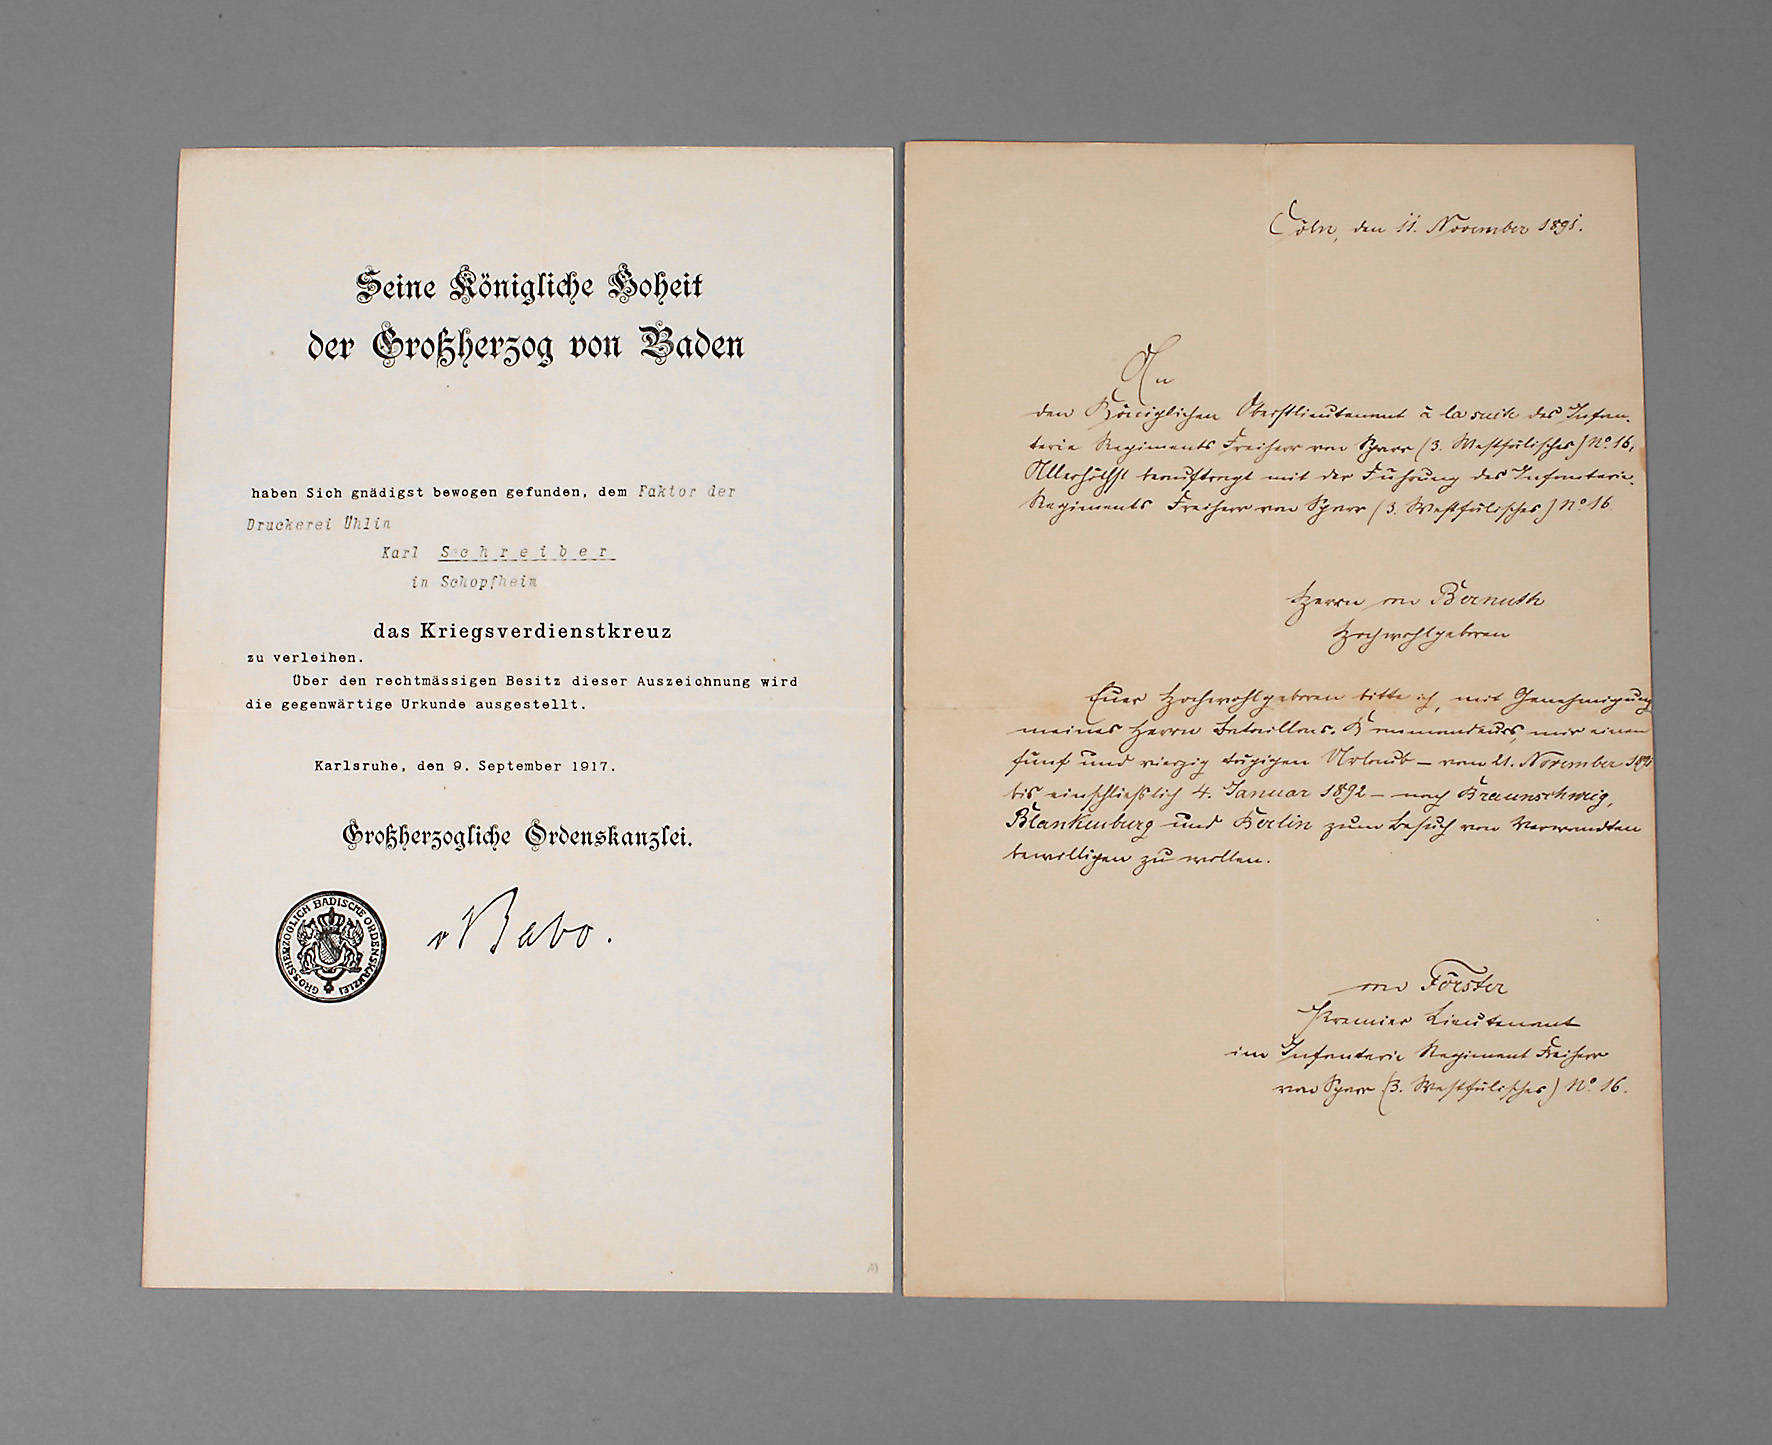 Seine Königliche Hoheit
der Großherzog von Baden
haben Sich gnädigst bewogen gefunden, dem Faktor der
Druckerei Ühlin
Karl Schreiber
in Schopfheim
das Kriegsverdienstkreuz
zu verleihen.
Über den rechtmässigen Besitz dieser Auszeichnung wird
die gegenwärtige Urkunde ausgestellt.
Karlsruhe, den 9. September 1917.
Großherzogliche Ordenskanzlei.
GROSSHERZOGLICH BADISCHE ORDENSKANZLEI
v Babo.
Cöln, den 11. November 1891.
An
den Königlichen Oberstlieutenant à la suite des Infan-
terie Regiments Freiherr von Sparr (3. Westfälisches) No. 16,
Allerhöchst beauftragt mit der Führung des Infanterie-
Regiments Freiherr von Sparr (3. Westfälisches) No. 16.
Herrn von Bernuth
Hochwohlgeboren
Euer Hochwohlgeboren bitte ich, mit Genehmigung
meines Herrn Bataillons-Kommandeurs, mir einen
fünf und vierzig tägigen Urlaub – vom 21. November 1891
bis einschließlich 4. Januar 1892 – nach Braunschweig,
Blankenburg und Berlin zum Besuch von Verwandten
bewilligen zu wollen.
von Förster
Premier Lieutenant
im Infanterie Regiment Freiherr
von Sparr (3. Westfälisches) No. 16.